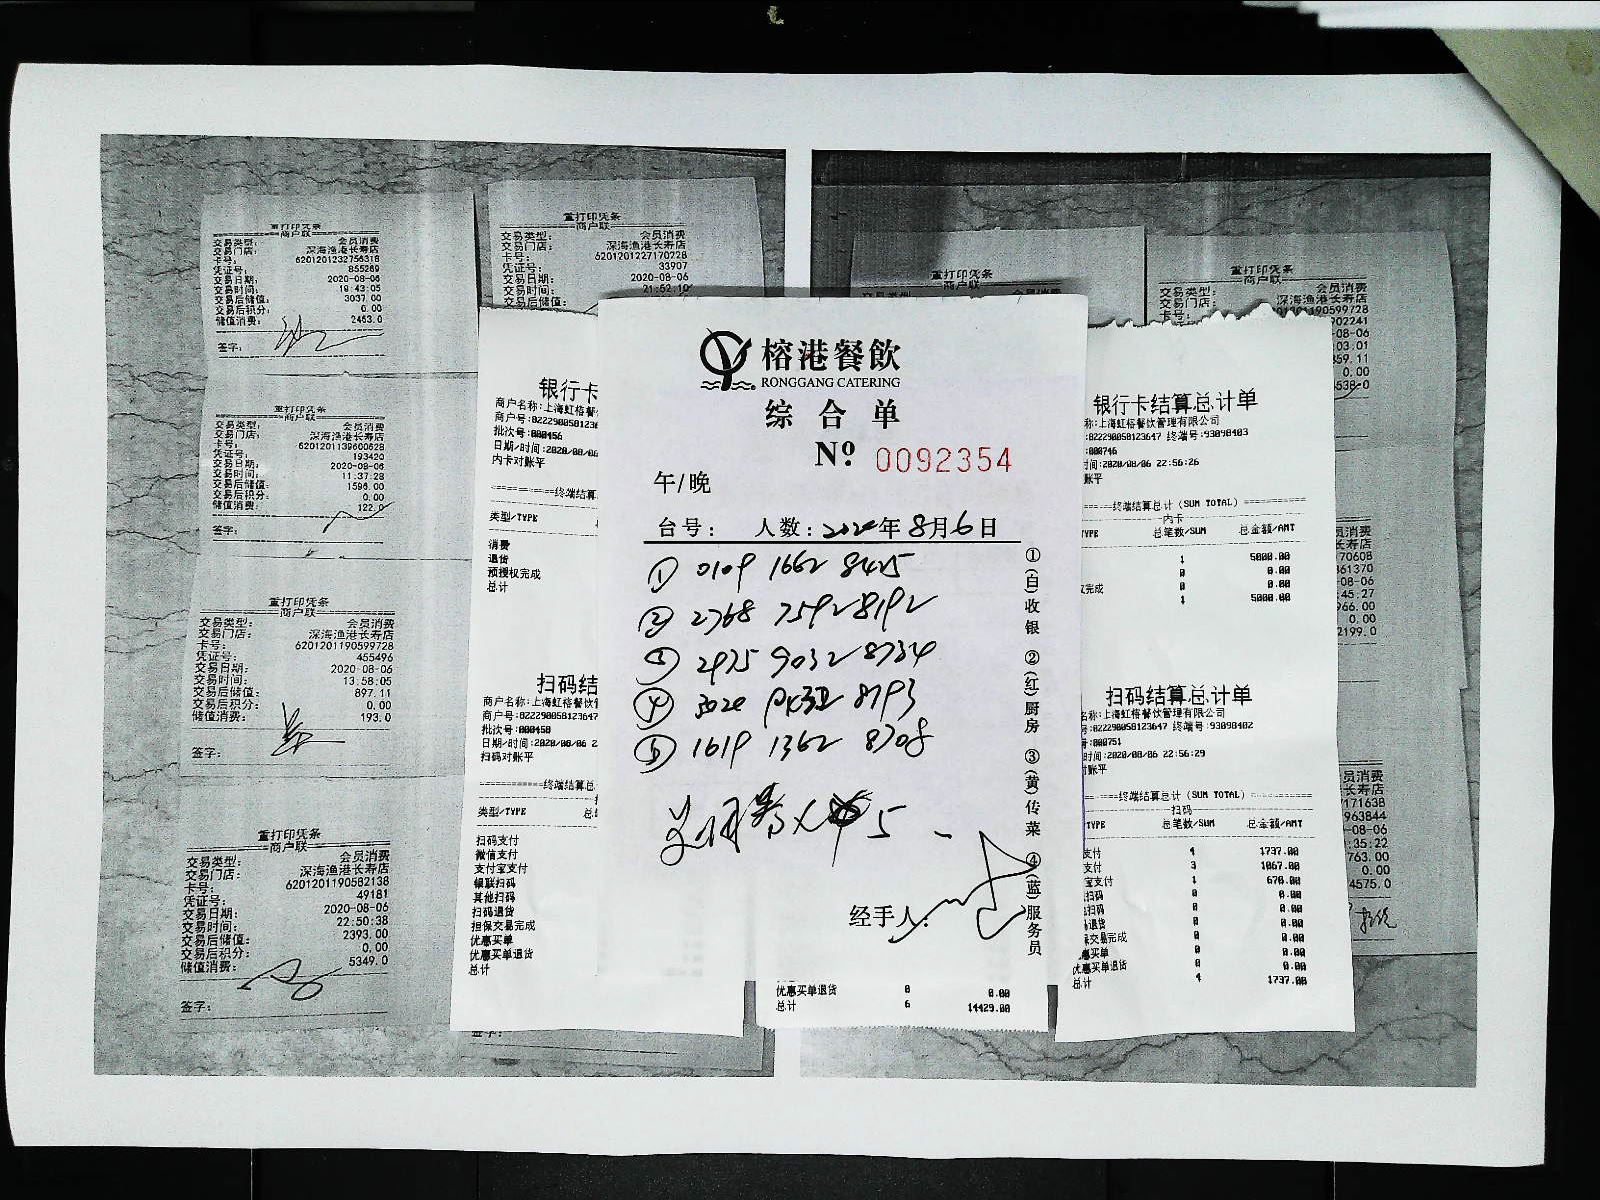 重打印凭条
商户联
交易类型: 会员消费
交易门店: 深海渔港长寿店
卡号: 6201201232756318
凭证号: 855269
交易日期: 2020-08-06
交易时间:
交易后储值: 3037.00
交易后积分: 0.00
储值消费: 2463.0
签字:
重打印凭条
商户联
交易类型: 会员消费
交易门店: 深海渔港长寿店
卡号: 6201201139600628
凭证号: 193420
交易日期: 2020-08-06
交易时间: 11:37:28
交易后储值: 1596.00
交易后积分: 0.00
储值消费: 122.0
签字:
重打印凭条
商户联
交易类型: 会员消费
交易门店: 深海渔港长寿店
卡号: 6201201190599728
凭证号: 455496
交易日期: 2020-08-06
交易时间: 13:58:05
交易后储值: 897.11
交易后积分: 0.00
储值消费: 193.0
签字:
重打印凭条
商户联
交易类型: 会员消费
交易门店: 深海渔港长寿店
卡号: 6201201190582138
凭证号: 49181
交易日期: 2020-08-06
交易时间: 22:50:38
交易后储值: 2393.00
交易后积分: 0.00
储值消费: 5349.0
签字:
重打印凭条
商户联
交易类型: 会员消费
交易门店: 深海渔港长寿店
卡号: 6201201227170228
凭证号: 33907
交易日期: 2020-08-06
交易时间: 21:52:10
交易后储值:
银行卡
商户名称:上海虹榕餐
商户号:8222900581236
批次号:000456
日期/时间:2020/08/06
内卡对账平
终端结算
类型/TYPE
消费
退货
预授权完成
总计
扫码结
商户名称:上海虹榕餐饮
商户号:822290058123647
批次号:000450
日期/时间:2020/08/06 2
扫码对账平
终端结算总
类型/TYPE
扫码支付
微信支付
支付宝支付
银联扫码
其他扫码
扫码退货
担保交易完成
优惠买单
优惠买单退货
总计
榕港餐飲
RONGGANG CATERING
综合单
Nº 0092354
午/晚
台号: 人数: 2020年8月6日
① 0109 1662 8425
② 2768 7592 8192
③ 2975 9032 8734
④ 3020 8793
⑤ 1619 1362 8708
经手人:
①(白)收银 ②(红)厨房 ③(黄)传菜 ④(蓝)服务员
优惠买单退货 0 0.00
总计 6 14429.00
重打印凭条
商户联
重打印凭条
商户联
交易类型: 会员消费
交易门店: 深海渔港长寿店
卡号: 0190599728
902241
-08-06
03.01
359.11
0.00
538.0
银行卡结算总计单
称:上海虹榕餐饮管理有限公司
822290058123647 终端号:93098403
000746
时间:2020/08/06 22:56:26
账平
终端结算总计 (SUM TOTAL)
内卡
TYPE 总笔数/SUM 总金额/AMT
1 5000.00
0 0.00
完成 0 0.00
1 5000.00
扫码结算总计单
名称:上海虹榕餐饮管理有限公司
号:822290058123647 终端号:93098402
号:000751
时间:2020/08/06 22:56:29
对账平
终端结算总计 (SUM TOTAL)
扫码
TYPE 总笔数/SUM 总金额/AMT
支付 4 1737.00
支付 3 1067.00
宝支付 1 670.00
扫码 0 0.00
扫码 0 0.00
退货 0 0.00
保交易完成 0 0.00
惠买单 0 0.00
优惠买单退货 0 0.00
总计 4 1737.00
员消费
长寿店
70608
61370
-08-06
45.27
966.00
0.00
2199.0
员消费
长寿店
171638
963844
-08-06
35:22
763.00
0.00
4575.0
签字: